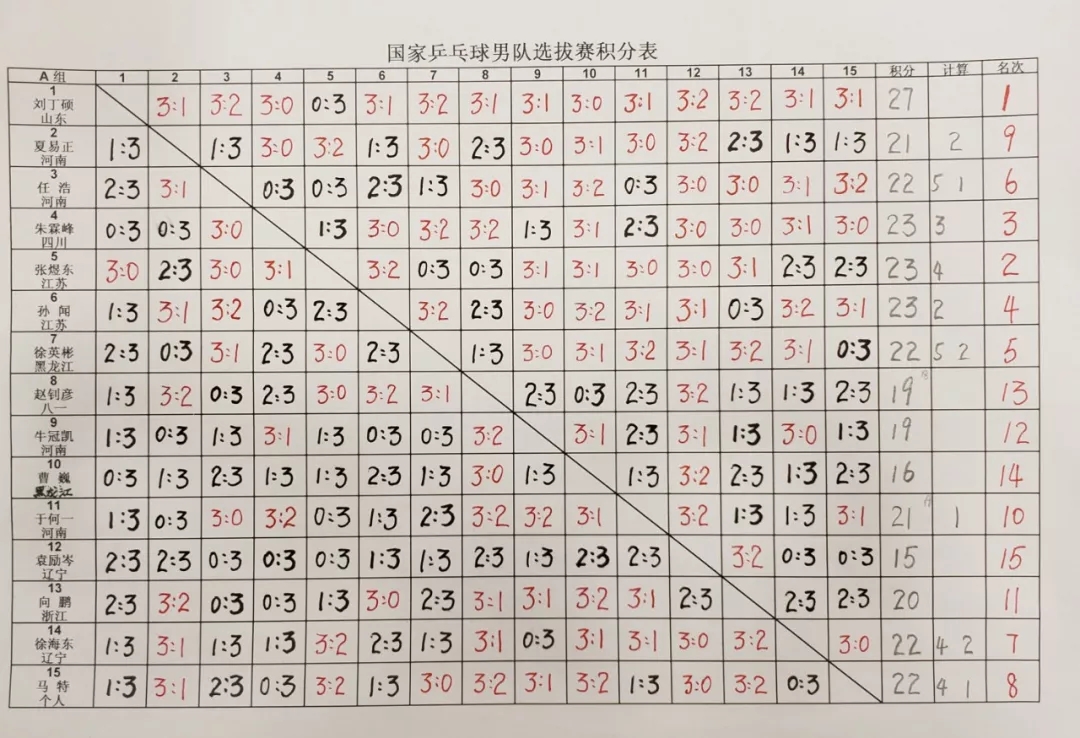 国家乒乓球男队选拔赛积分表
A组 1 2 3 4 5 6 7 8 9 10 11 12 13 14 15 积分 计算 名次
1
刘丁硕 3:1 3:2 3:0 0:3 3:1 3:2 3:1 3:1 3:0 3:1 3:2 3:2 3:1 3:1 27 1
山东
2
夏易正 1:3 1:3 3:0 3:2 1:3 3:0 2:3 3:0 3:1 3:0 3:2 2:3 1:3 1:3 21 2 9
河南
3
任浩 2:3 3:1 0:3 0:3 2:3 1:3 3:0 3:1 3:2 0:3 3:0 3:0 3:1 3:2 22 5 1 6
河南
4
朱霖峰 0:3 0:3 3:0 1:3 3:0 3:2 3:2 1:3 3:1 2:3 3:0 3:0 3:1 3:0 23 3 3
四川
5
张煜东 3:0 2:3 3:0 3:1 3:2 0:3 0:3 3:1 3:1 3:0 3:0 3:1 2:3 2:3 23 4 2
江苏
6
孙闻 1:3 3:1 3:2 0:3 2:3 3:2 2:3 3:0 3:2 3:1 3:1 0:3 3:2 3:1 23 2 4
江苏
7
徐英彬 2:3 0:3 3:1 2:3 3:0 2:3 1:3 3:0 3:1 3:2 3:1 3:2 3:1 0:3 22 5 2 5
黑龙江
8
赵钊彦 1:3 3:2 0:3 2:3 3:0 3:2 3:1 2:3 0:3 2:3 3:2 1:3 1:3 2:3 19 13
八一
9
牛冠凯 1:3 0:3 1:3 3:1 1:3 0:3 0:3 3:2 3:1 2:3 3:1 1:3 3:0 1:3 19 12
河南
10
曹巍 0:3 1:3 2:3 1:3 1:3 2:3 1:3 3:0 1:3 1:3 3:2 2:3 1:3 2:3 16 14
黑龙江
11
于何一 1:3 0:3 3:0 3:2 0:3 1:3 2:3 3:2 3:2 3:1 3:2 1:3 1:3 3:1 21 1 10
河南
12
袁励岑 2:3 2:3 0:3 0:3 0:3 1:3 1:3 2:3 1:3 2:3 2:3 3:2 0:3 0:3 15 15
辽宁
13
向鹏 2:3 3:2 0:3 0:3 1:3 3:0 2:3 3:1 3:1 3:2 3:1 2:3 2:3 2:3 20 11
浙江
14
徐海东 1:3 3:1 1:3 1:3 3:2 2:3 1:3 3:1 0:3 3:1 3:1 3:0 3:2 3:0 22 4 2 7
辽宁
15
马特 1:3 3:1 2:3 0:3 3:2 1:3 3:0 3:2 3:1 3:2 1:3 3:0 3:2 0:3 22 4 1 8
个人